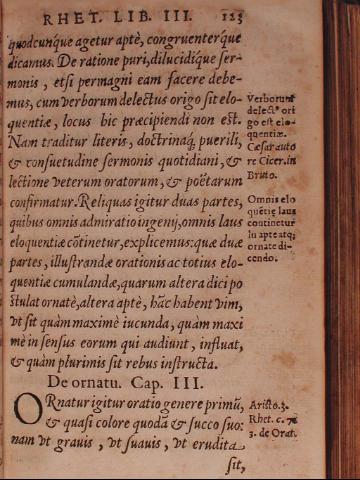 RHET. LIB. III. 123
quodcunque agetur aptè, congruenterque
dicamus. De ratione puri, dilucidique ser-
monis, etsi permagni eam facere debe-
mus, cum verborum delectus origo sit elo-
quentiæ, locus hic præcipiendi non est.
Nam traditur literis, doctrinaq́; puerili,
& consuetudine sermonis quotidiani, &
lectione veterum oratorum, & poëtarum
confirmatur. Reliquas igitur duas partes,
quibus omnis admiratio ingenij, omnis laus
eloquentiæ cōtinetur, explicemus: quæ duæ
partes, illustrandæ orationis ac totius elo-
quentiæ cumulandæ, quarum altera dici po
stulat ornatè, altera aptè, hāc habent vim,
vt sit quàm maximè iucunda, quàm maxi
mè in sensus eorum qui audiunt, influat,
& quàm plurimis sit rebus instructa.
De ornatu. Cap. III.
ORnatur igitur oratio genere primū,
& quasi colore quodā & succo suo:
nam vt grauis, vt suauis, vt erudita
sit,
Verborum
delectꝰ ori
go est elo-
quentiæ.
Cæsar auto
re Cicer. in
Bruto.
Omnis elo
quētiæ laus
continetur
in apte atq;
ornate di-
cendo.
Aristo. 3.
Rhet. c. 7.
3. de Orat.